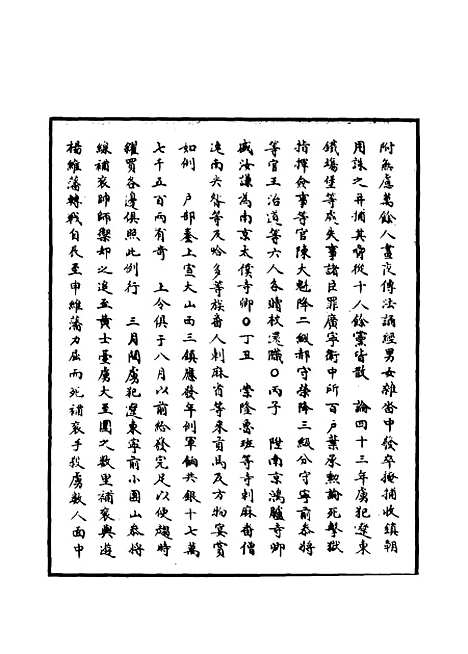 附無慮萬餘人晝夜傳法誦經男女雜沓中發卒掩捕收縝朝
用誅之并捕其脅從十人餘黨皆散　論四十三年虜犯遼東
鐵場堡等處失事諸臣罪廣寧衛中所百戶葉承勲論死繫獄
指揮僉事等官陳大魁降二級都守榮降三級分守寧前叅將
等官王治道等六人各贖杖還職○丙子　陞南京鴻臚寺卿
戚汝謙為南京太僕寺卿○丁丑　崇隆魯班等寺剌麻番僧
遠南六咎等及哈多等族番人剌麻省等來貢馬及方物宴賞
如例　戶部奏上宣大山西三鎮應發年例軍餉共銀十七萬
七千五百兩有奇　上令俱于八月以前給發完足以便趨時
糴買各邊俱照此例行　三月間虜犯遼東寧前小團山叅將
線補袞帥師禦却之追至黄土臺虜大至圍之數里補袞與遊
楊維藩轉戰自辰至申維藩力屈而死補袞手殺虜數人面中